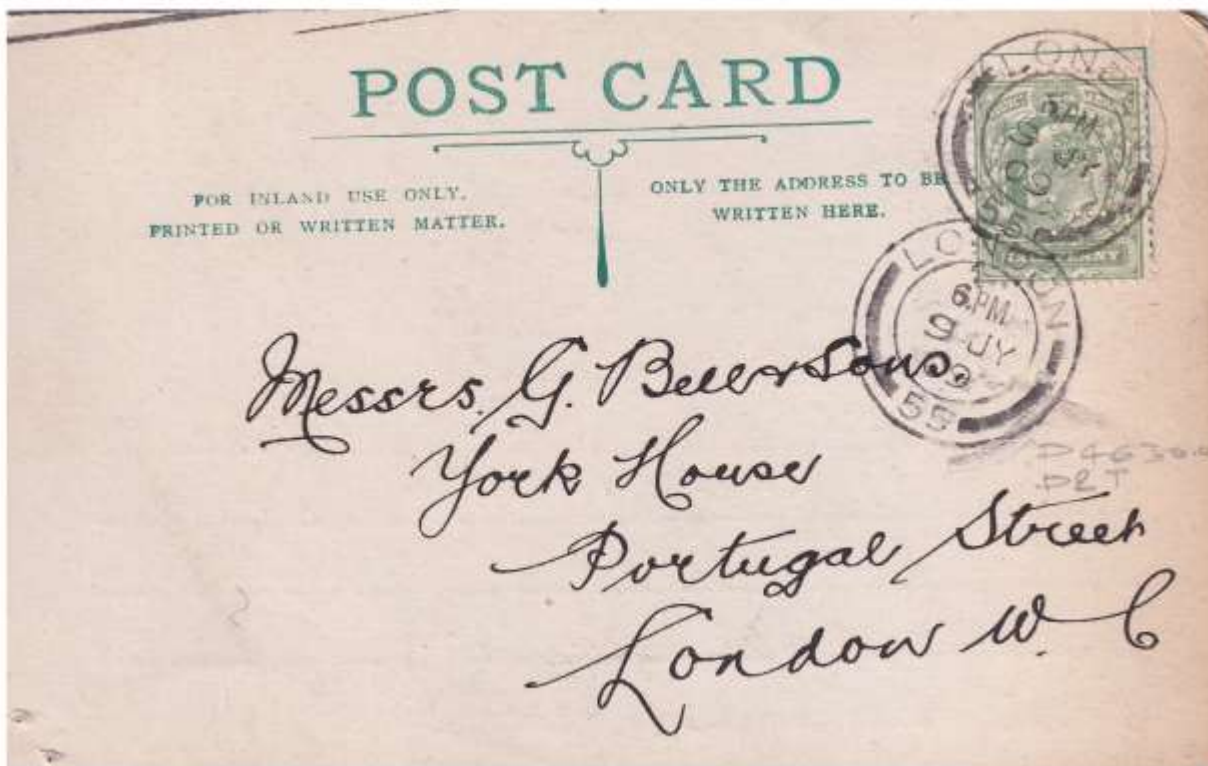 POST CARD
FOR INLAND USE ONLY.
PRINTED OR WRITTEN MATTER.
ONLY THE ADDRESS TO BE
WRITTEN HERE.
LONDON
6.PM
9 JY
09
55
Messrs. G. Bell & Sons.
York House
Portugal Street
London W.C